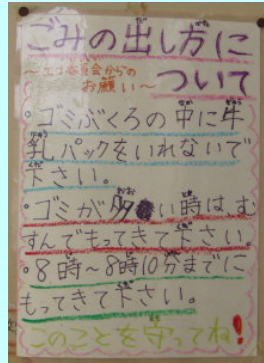 ごみの出し方に
ついて
～エコ委員会からの
お願い～
・ゴミぶくろの中に牛
乳パックをいれないで
下さい。
・ゴミが多い時は、む
すんでもってきて下さい。
・8時～8時10分までに
もってきて下さい。
このことを守ってね!